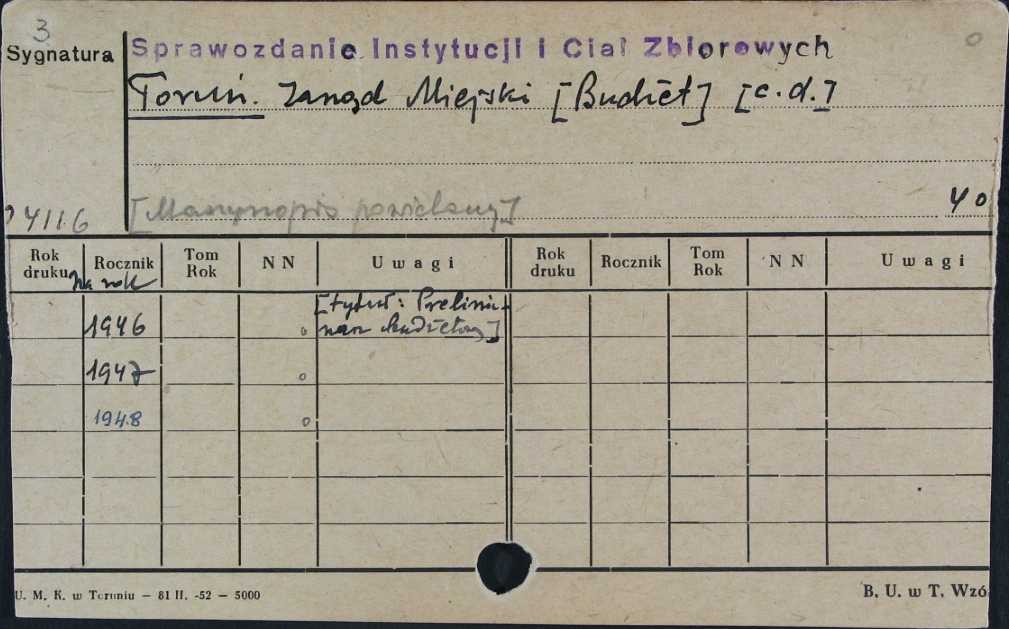 3
Sygnatura
Sprawozdanie Instytucji i Ciał Zbiorowych
Toruń. Zarząd Miejski [Budżet] [c.d.]
[Maszynopis powielany]
4116
40
Rok druku
Rocznik
Tom Rok
N N
Uwagi
Rok druku
Rocznik
Tom Rok
N N
Uwagi
Na rok
[tytuł: Prelimi-
1946 o narz budżetowy]
1947 o
1948 o
U. M. K. w Toruniu — 81 II. -52 — 5000
B. U. w T. Wzó